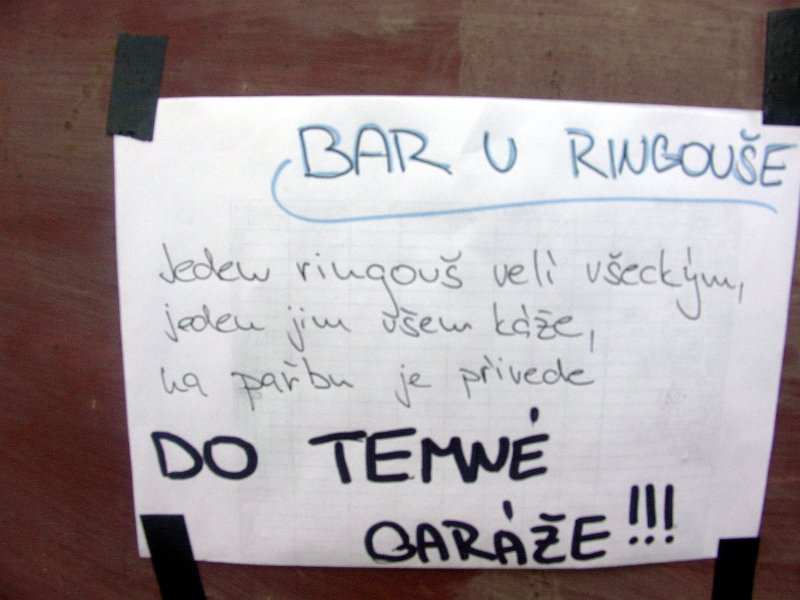 BAR U RINGOUŠE
Jeden ringouš velí všeckým,
jeden jim všem káže,
na pařbu je přivede
DO TEMNÉ
GARÁŽE!!!